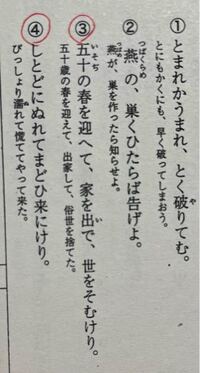 ① とまれかうまれ、とく破りてむ。
とにもかくにも、早く破ってしまおう。
② 燕の、巣くひたらば告げよ。
燕が、巣を作ったら知らせよ。
③ 五十の春を迎へて、家を出で、世をそむけり。
五十歳の春を迎えて、出家して、俗世を捨てた。
④ しとどにぬれてまどひ来にけり。
びっしょり濡れて慌ててやって来た。